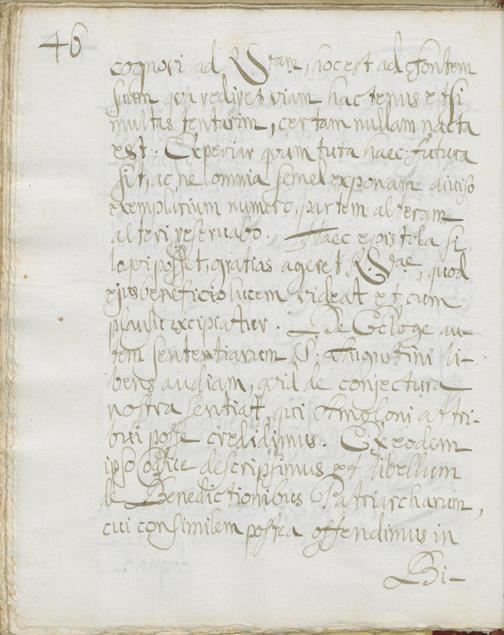 46
cognovi ad R. Vram, hoc est ad fontem
suum qua rediret viam hactenus etsi
multas tentarim, certam nullam nacta
est. Experiar quam tuta haec futura
sit, ac ne omnia semel exponam diviso
exemplarium numero, partem alteram
alteri reservabo. Haec epistola si
loqui posset, gratias ageret R. Vrae, quod
ejus beneficio lucem videat et cum
plausu excipiatur. De Ecloge au-
tem sententiarum S. Augustini li-
bens audiam, quid de conjectura
nostra sentiat, qui Amoloni attri-
bui posse credidimus. Ex eodem
ipso codice descripsimus et libellum
de Benedictionibus Patriarcharum,
cui consimilem postea offendimus in
Bi-